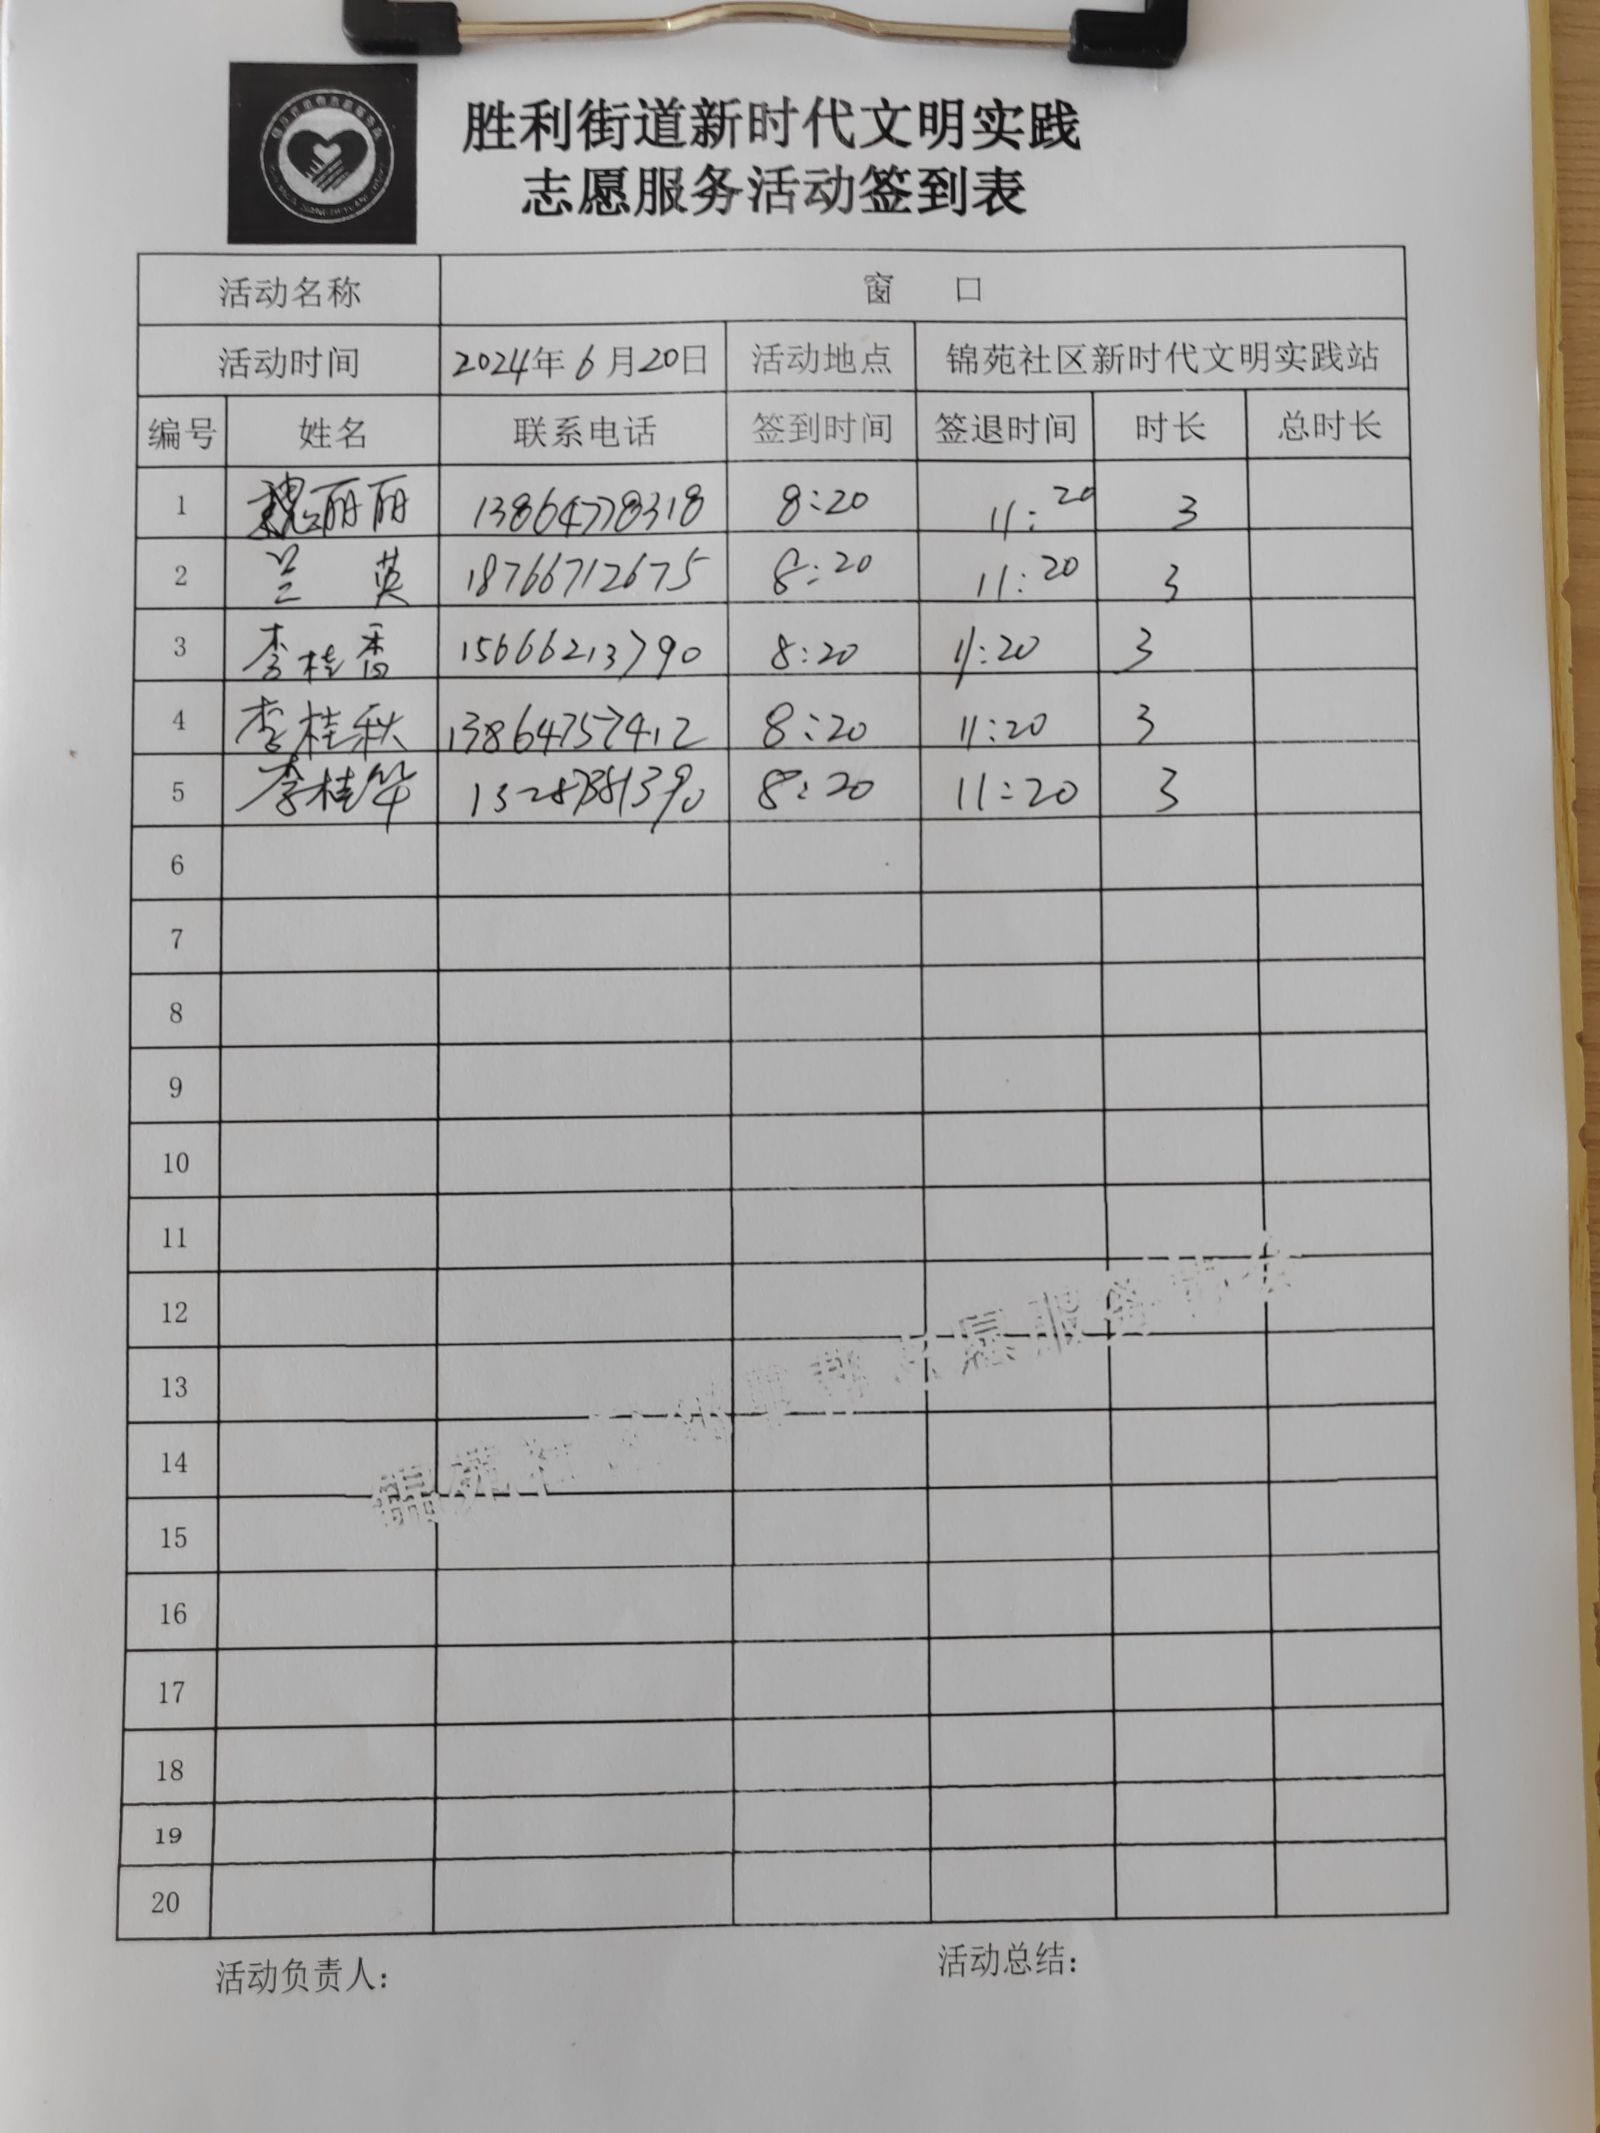 胜利街道新时代文明实践
志愿服务活动签到表
活动名称 窗 口
活动时间 2024年6月20日 活动地点 锦苑社区新时代文明实践站
编号 姓名 联系电话 签到时间 签退时间 时长 总时长
1 魏丽丽 13864778318 8:20 11:20 3
2 兰英 18766712675 8:20 11:20 3
3 李桂香 15666213790 8:20 11:20 3
4 李桂秋 13864757412 8:20 11:20 3
5 李桂华 8:20 11:20 3
6
7
8
9
10
11
12
13
14
15
16
17
18
19
20
锦苑社 志愿服务
活动负责人: 活动总结: